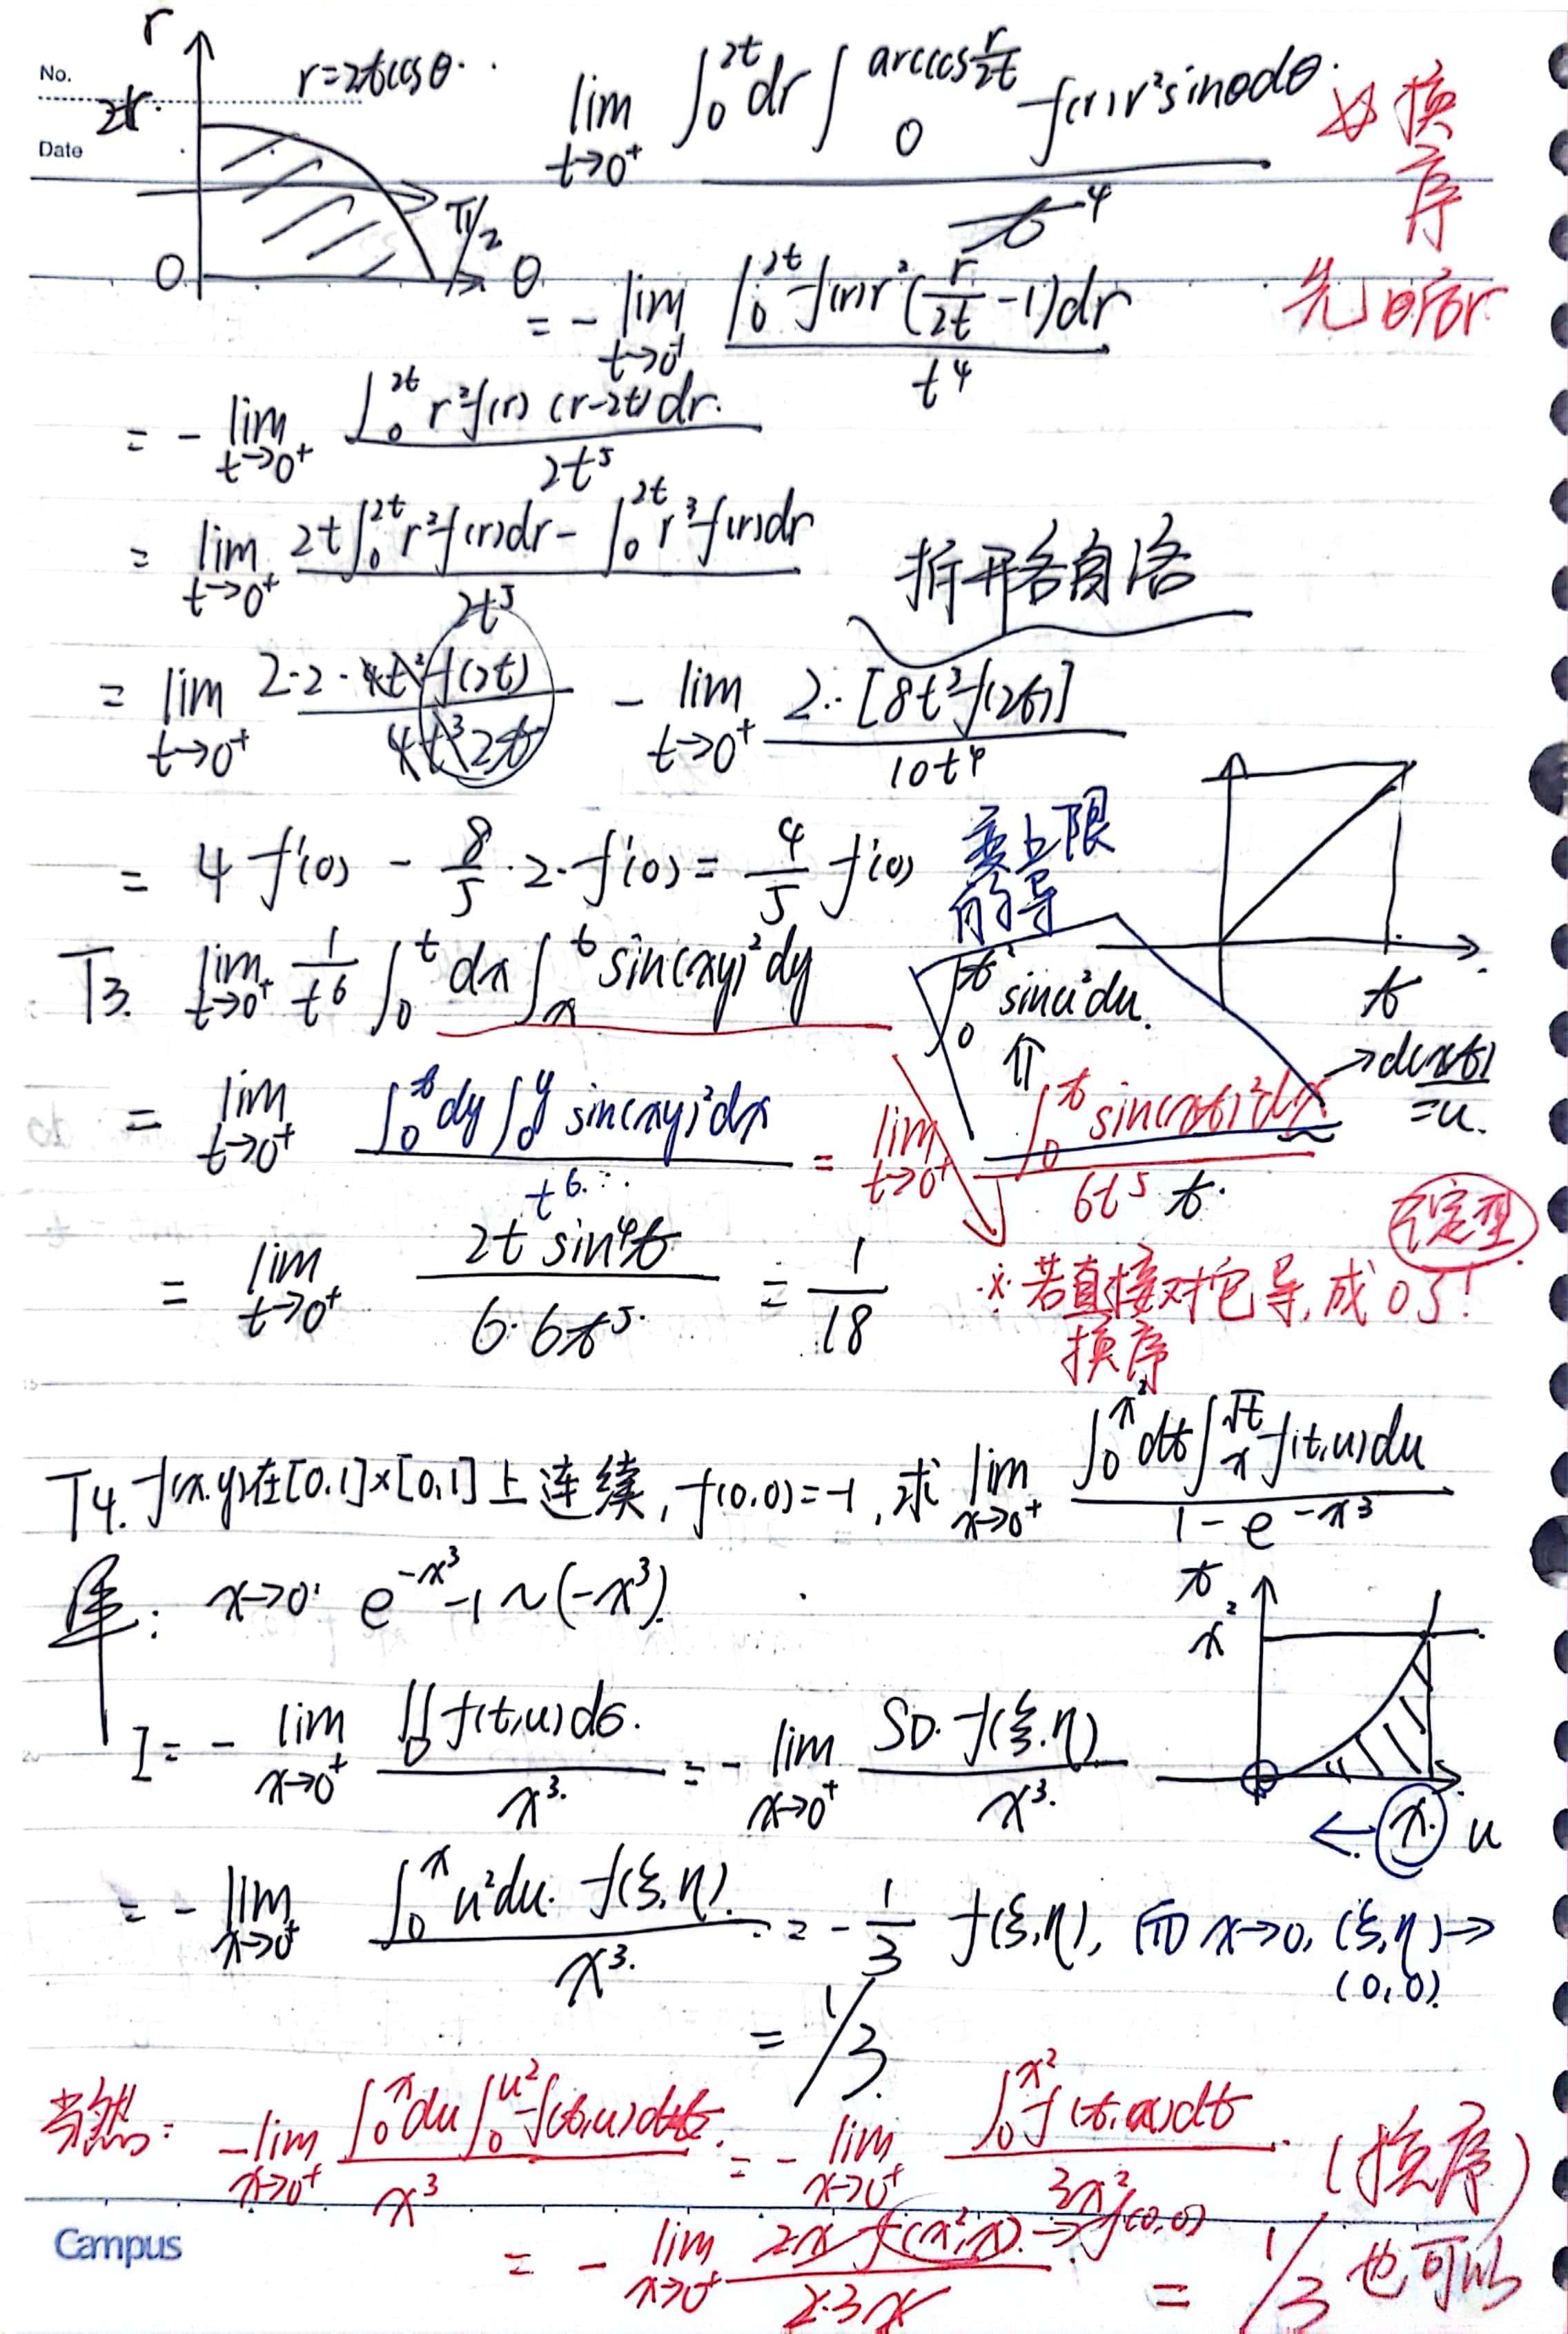 No.
Date
r
2t
r=2tcosθ
0
π/2
θ
lim t→0⁺ ∫₀^{2t} dr ∫₀^{arccos r/2t} f(r)r²sinθdθ / t⁴
换序
先θ后r
= - lim t→0⁺ ∫₀^{2t} f(r)r²(r/2t -1)dr / t⁴
= - lim t→0⁺ ∫₀^{2t} r²f(r)(r-2t)dr / 2t⁵
= lim t→0⁺ (2t∫₀^{2t} r²f(r)dr - ∫₀^{2t} r³f(r)dr) / 2t⁵
拆开各自洛
= lim t→0⁺ 2·2·4t²f(2t) / 4t³2t - lim t→0⁺ 2·[8t³f(2t)] / 10t⁴
= 4f'(0) - 8/5 ·2·f'(0) = 4/5 f'(0)
变上限的导
t
T3. lim t→0⁺ 1/t⁶ ∫₀^t dx ∫ₓ^t sin(xy)²dy
∫₀^{t²} sinu²du
⇑
→d(xt)
=u.
= lim t→0⁺ ∫₀^t dy ∫₀^y sin(xy)²dx / t⁶ = lim t→0⁺ ∫₀^t sin(xt)²dx / 6t⁵ t
= lim t→0⁺ 2t sin⁴t / 6·6t⁵ = 1/18
※若直接对它导,成0了!
定型
换序
T4. f(x,y)在[0,1]×[0,1]上连续,f(0,0)=-1,求 lim x→0⁺ ∫₀^{x²} dt ∫ₓ^{√t} f(t,u)du / 1-e^{-x³}
解: x→0⁺ e^{-x³}-1~(-x³).
t
x²
x
u
I= - lim x→0⁺ ∬_D f(t,u)dσ / x³ = - lim x→0⁺ S_D·f(ξ,η) / x³
= - lim x→0⁺ ∫₀^x u²du·f(ξ,η) / x³ = - 1/3 f(ξ,η), 而x→0, (ξ,η)→(0,0).
= 1/3.
当然: - lim x→0⁺ ∫₀^x du ∫₀^{u²} f(t,u)dt / x³ = - lim x→0⁺ ∫₀^{x²} f(t,x)dt / 3x² (换序)
= - lim x→0⁺ 2x f(x²,x)→f(0,0) / 2·3x = 1/3 也可以
Campus